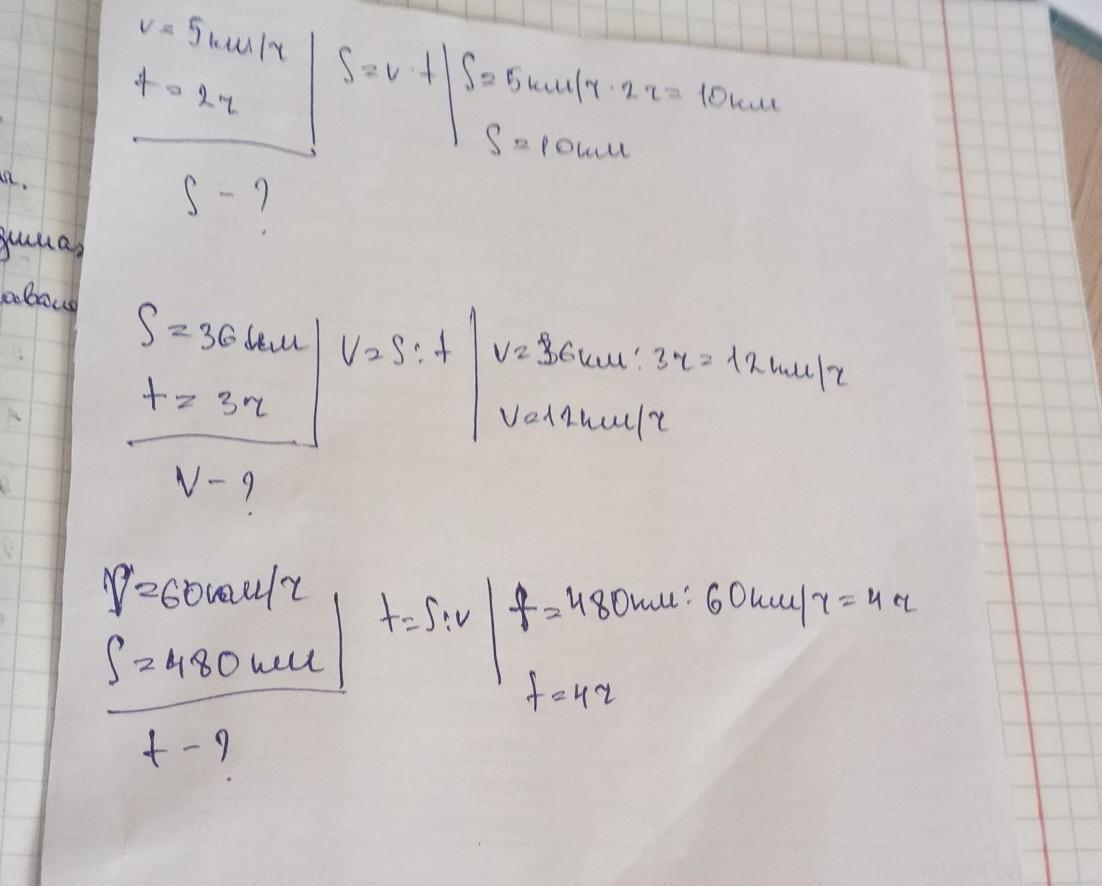 v = 5км/ч
t = 2ч
S = v · t
S = 5км/ч · 2ч = 10км
S = 10км
S - ?
S = 36км
t = 3ч
V = S : t
V = 36км : 3ч = 12км/ч
V = 12км/ч
V - ?
V = 60км/ч
S = 480км
t = S : v
t = 480км : 60км/ч = 4ч
t = 4ч
t - ?